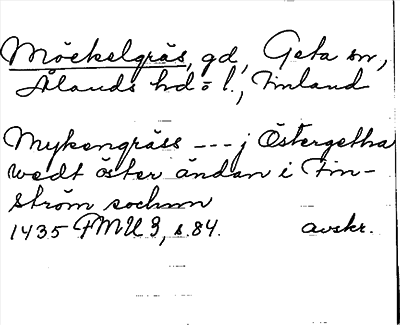 Möckelgräs, gd, Geta sn,
Ålands hd o l., Finland
Mykengräss --- j Östergetha
wedt öster ändan i Fin-
ström sochnn
1435 FMU 3, s. 84. avskr.